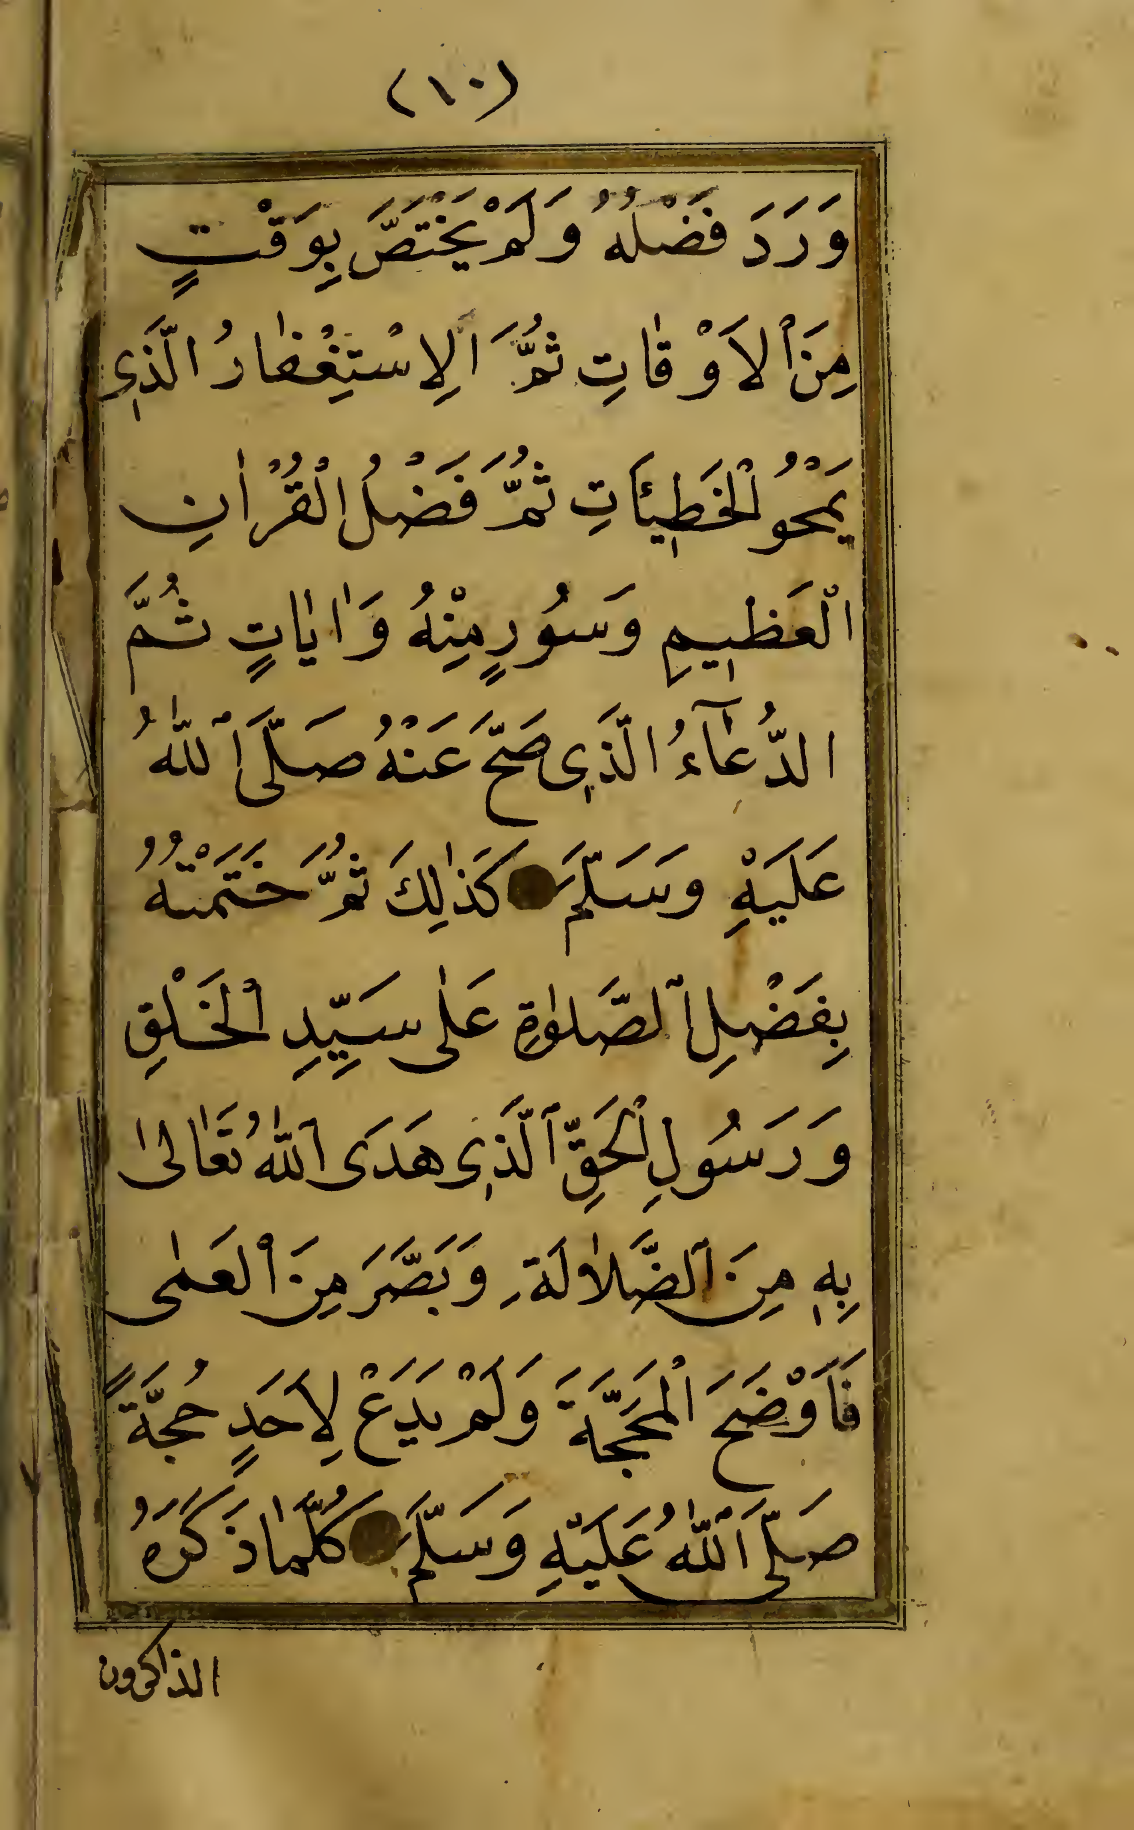 (١٠)
وَرَدَ فَضْلُهُ وَلَمْ يَخْتَصَّ بِوَقْتٍ
مِنَ ٱلاَوْقٰاتِ ثُمَّ اَلِاسْتِغْفٰارُ الَّذٖى
يَمْحُو ٱلْخَطٖيئَاتِ ثُمَّ فَضْلُ الْقُرْاٰنِ
الْعَظٖيمِ وَسُوَرٍ مِنْهُ وَاٰيٰاتٍ ثُمَّ
الدُّعٰآءُ الَّذٖى صَحَّ عَنْهُ صَلَّى ٱللّٰهُ
عَلَيْهِ وَسَلَّمَ كَذٰلِكَ ثُمَّ خَتَمْتُهُ
بِفَضْلِ ٱلصَّلٰوةِ عَلٰى سَيِّدِ ٱلْخَلْقِ
وَرَسُولِ ٱلْحَقِّ ٱلَّذٖى هَدَى ٱللّٰهُ تَعٰالىٰ
بِهٖ مِنَ ٱلضَّلاٰلَةِ وَبَصَّرَ مِنَ ٱلْعَمٰى
فَاَوْضَحَ الْمَحَجَّةَ وَلَمْ يَدَعْ لِاَحَدٍ حُجَّةً
صَلَّى ٱللّٰهُ عَلَيْهِ وَسَلَّمَ كُلَّمٰا ذَكَرَهُ
الذاكرون